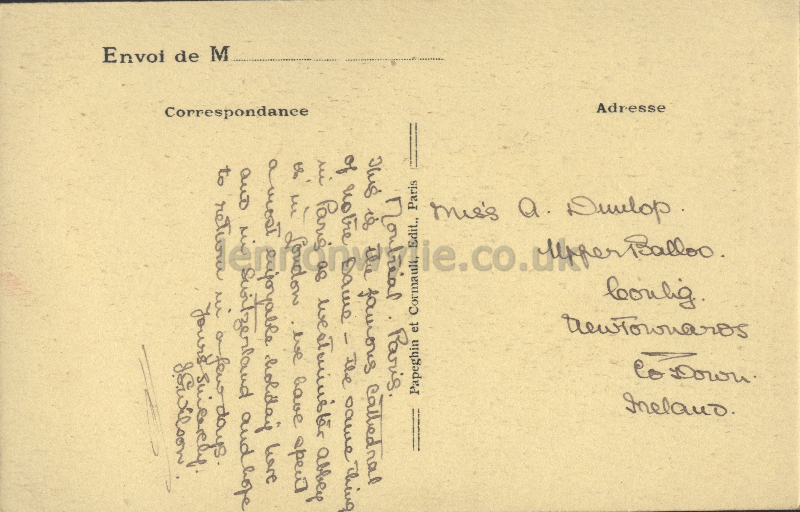 Envoi de M
Correspondance
Adresse
Montreal. Paris.
This is the famous Cathedral
of Notre Dame – the same thing
in Paris as Westminister Abbey
is in London. We have spent
a most enjoyable holiday here
and in Switzerland and hope
to return in a few days.
Yours Sincerely.
J.E. Wilson.
Papeghin et Cormault, Edit., Paris
Miss A. Dunlop.
Upper Balloo.
Conlig.
Newtownards
Co Down.
Ireland.
lennonwylie.co.uk